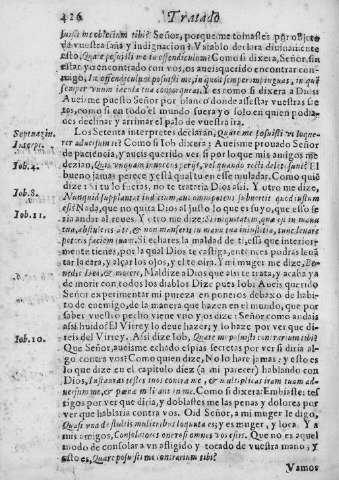 426 Tratado
de vuestra saña y indignacion? Vatablo declara divinamente
esto, Quare posuisti me in offendiculum? Como si dixera, Señor, sin
estar yo encontrado con vos, os aveis querido encontrar con-
migo, In offendiculum posuisti me, in quod semper impingas, in quod
semper tua iacula
Aveisme puesto Señor por blanco donde assestar vuestras sae-
tas, como si en todo el mundo fuera yo solo en quien podia-
des declinar y arrimar el palo de vuestra ira.
Septuagin. Los Setenta interpretes declaran, Quare me posuisti vt loque-
rer adversum te? Como si Iob dixera; Aveisme provado Señor
de paciencia, y aveis querido ver si por lo que mis amigos me
Iob. 4. dezian, Quis vnquam innocens perijt, vel quando recti deleti sunt? El
bueno jamas perece y està la qual tu en esse muladar. Como quiē
dize: Si tu lo fueras, no te trataria Dios assi. Y otro me dize,
Iob. 8. Nunquid supplantat iudicium, aut omnipotens subvertit quod iustum
est? Nada, que no quita Dios al justo lo que es suyo, que esso se-
Iob. 11. ria andar al reves. Y otro me dize: Si iniquitatem, quæ est in manu
tua, abstuleris à te, & non manserit in manu tua iniustitia, tunc levare
poteris faciem tuam. Si echares la maldad de ti, essa que interior-
mente tienes, por la qual Dios te castiga, entonces podras levā-
tar la cara, y alçar los ojos, y el te oirà. Y mi muger me dize, Be-
nedic Deo, & morere, Maldize a Dios que assi te trata, y acaba ya
de morir con todos los diablos Dize pues Iob; Aveis querido
Señor experimentar mi pureza en poneros debaxo de habi-
to de enemigo, de la manera que hazen en el mundo, que por
saber vuestro pecho viene vno y os dize: Señor como andais
assi huido? El Virrey lo deve hazer, y lo haze por ver que di-
Iob. 10. reis del Virrey. Assi dize Iob, Quare me posuisti contrarium tibi?
Que Señor, aveisme echado espias secretas por ver si diria al-
go contra vos? Como quien dize, No lo harè jamas: y esto es
lo que dize en el capitulo diez (a mi parecer) hablando con
Dios, Instauras testes tuos contra me, & multiplicas iram tuam ad-
versum me, & pœnæ militant in me. Como si dixera: Embiaste tes-
tigos por ver que diria, y doblasles las penas y los dolores por
ver que hablaria contra vos. Oid Señor, a mi muger le digo,
Quasi vna de stultis mulieribus loquuta es; y es muger, y loca. Y a
mis amigos, Consolatores onerosi omnes vos estis. Que no es aquel
modo de consolar vn afligido y tocado de vuestra mano; y
esto es, Quare posuisti me contrarium tibi?
Vamos